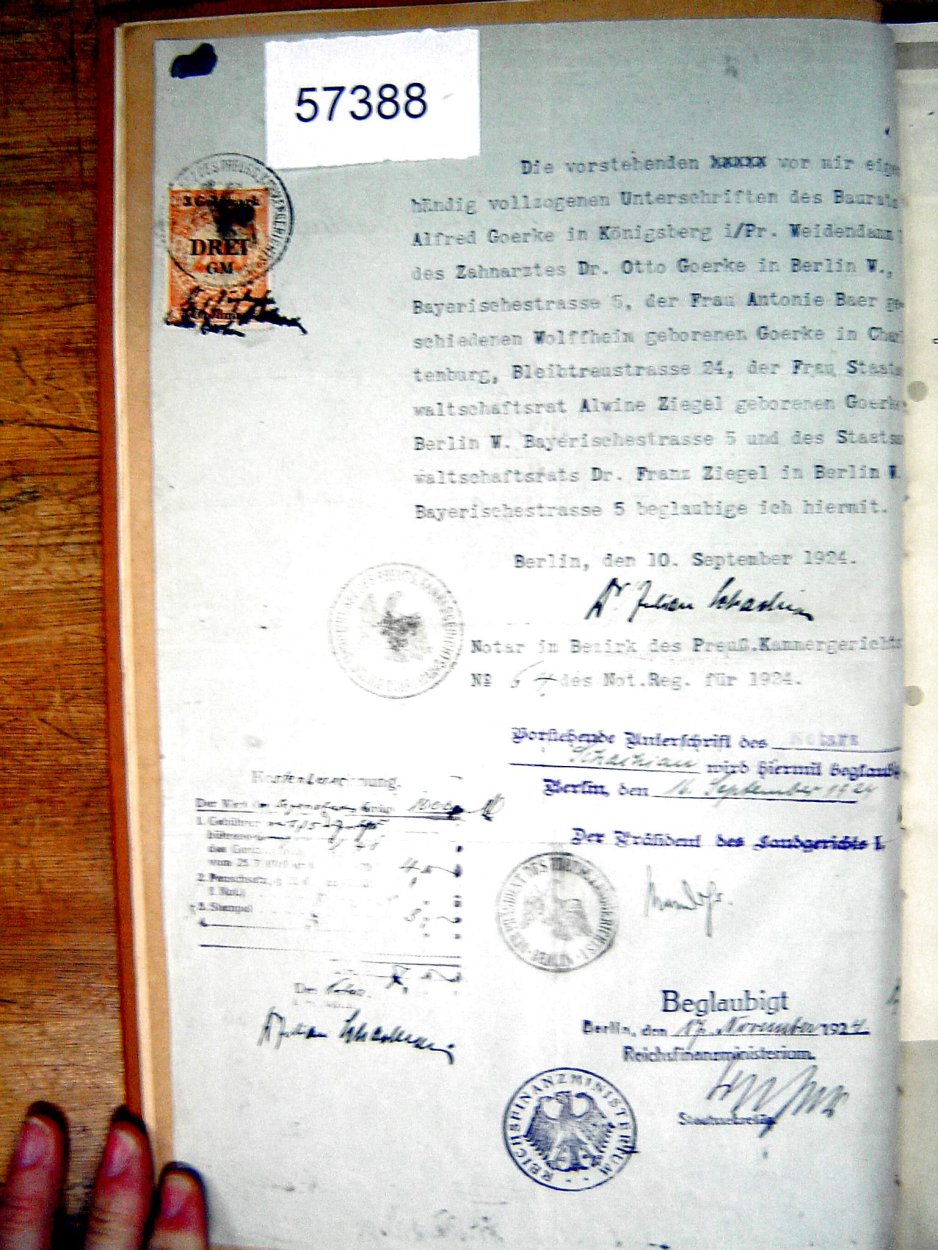 57388
3 Goldmark
DREI
GM
Die vorstehenden xxxxx vor mir eige
händig vollzogenen Unterschriften des Baurats
Alfred Goerke in Königsberg i/Pr. Weidendamm
des Zahnarztes Dr. Otto Goerke in Berlin W.,
Bayerischestrasse 5, der Frau Antonie Baer ge
schiedenen Wolffheim geborenen Goerke in Char
tenburg, Bleibtreustrasse 24, der Frau Staats
waltschaftsrat Alwine Ziegel geborenen Goerke
Berlin W. Bayerischestrasse 5 und des Staats
waltschaftsrats Dr. Franz Ziegel in Berlin W.
Bayerischestrasse 5 beglaubige ich hiermit.
Berlin, den 10. September 1924.
Dr. Julian Schachian
Notar im Bezirk des Preuß.Kammergerichts
№ 64 des Not.Reg. für 1924.
Vorstehende Unterschrift des Notars
Schachian wird hiermit beglaub
Berlin, den 16. September 1924
Der Präsident des Landgerichts I.
Kostenberechnung.
1. Gebühr
3. Stempel
Der Notar.
Dr Julian Schachian
Beglaubigt
Berlin, den 17. November 1924.
Reichsfinanzministerium.
Staatssekretär
REICHSFINANZMINISTERIUM